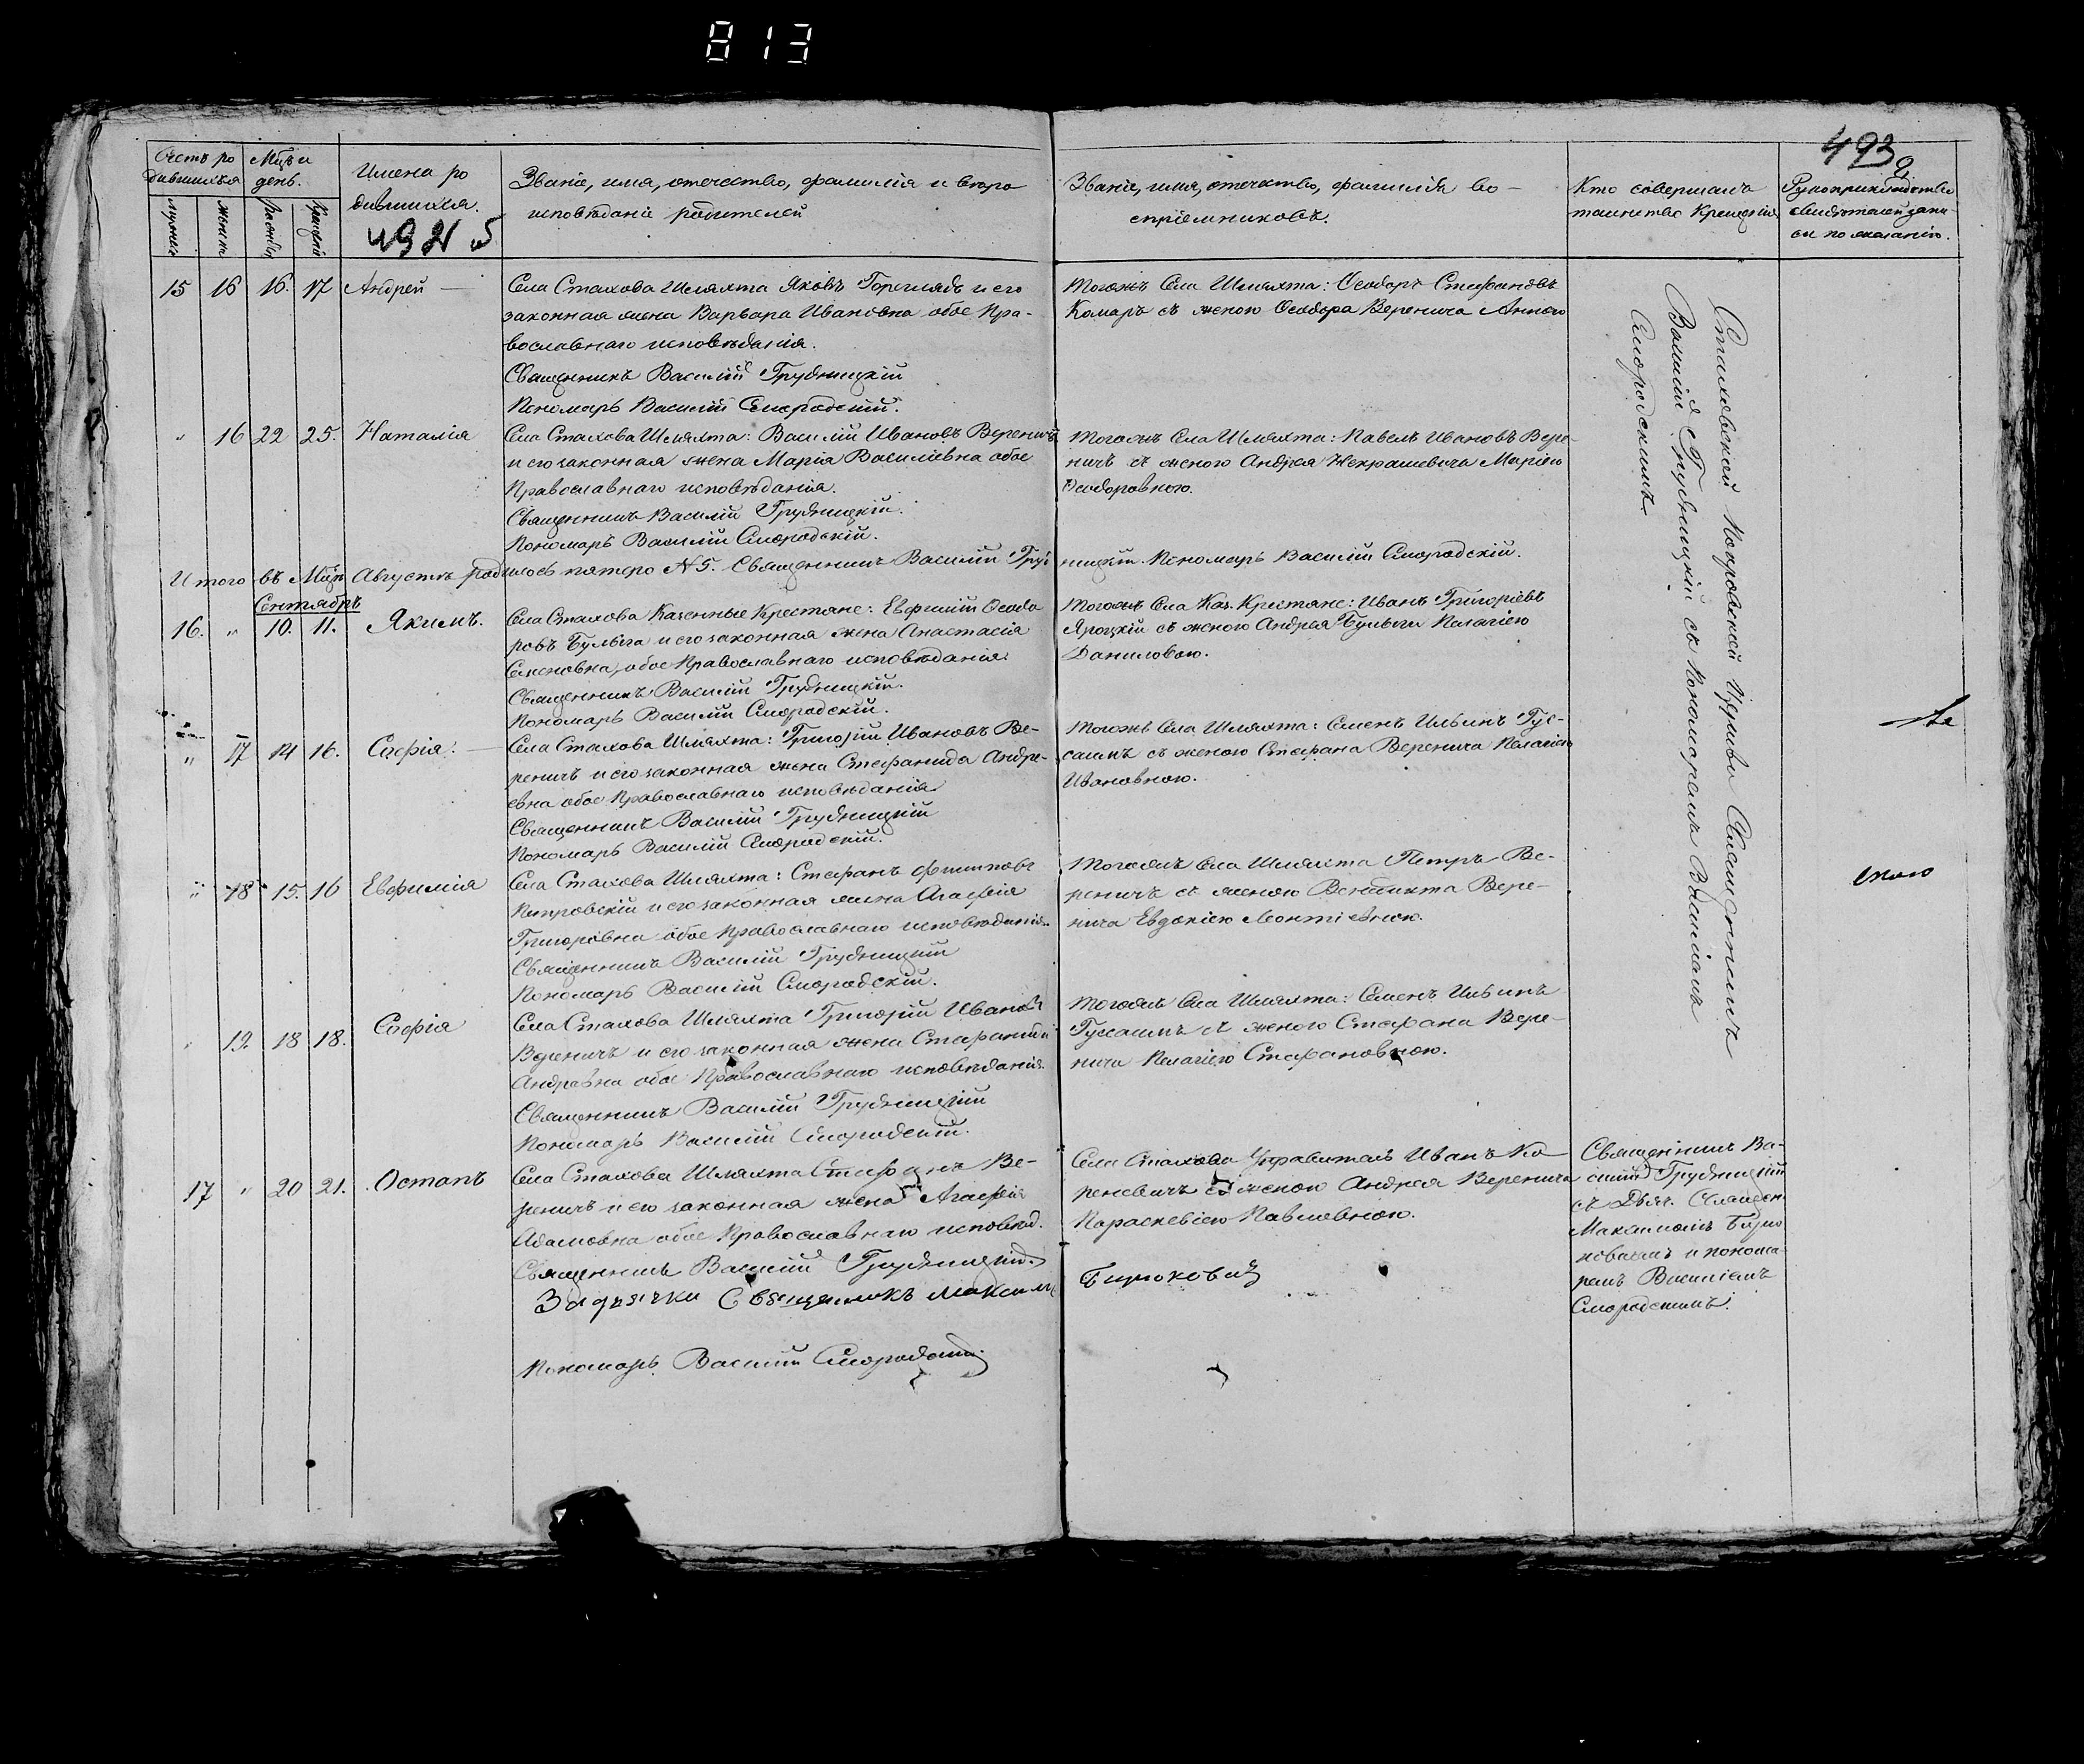 813
493
Счетъ ро
дившихся
Мѣцъ и
день.
Имена ро
дившихся.
Званіе, имя, отечество, фамилія и вѣро
исповѣданіе родителей
Званіе, имя, отечество, фамилія во-
спріемниковъ.
Кто совершалъ
таинство Крещенія
Рукоприкладство
свидѣтелей запи-
си по желанію.
15 16 16. 17 Андрей
Села Стахова Шляхта Яковъ Горглядъ и его
законная жена Варвара Ивановна обое Пра-
вославнаго исповѣданія.
Священникъ Василій Грудницкій
Пономарь Василій Смородскій.
Тогожъ Села Шляхта: Ѳеодоръ Стефановъ
Комаръ съ женою Ѳеодора Веренича Анною
" 16 22 25. Наталія
Села Стахова Шляхта: Василій Ивановъ Вереничъ
и его законная жена Марія Василіевна обое
Православнаго исповѣданія.
Священникъ Василій Грудницкій.
Пономарь Василій Смородскій.
Тогожъ Села Шляхта: Павелъ Ивановъ Вере-
ничъ съ женою Андрея Некрашевича Маріею
Ѳеодоровною.
Итого въ Мцѣ Августѣ родилось пятеро N 5. Священникъ Василій Грудницкій. Пономарь Василій Смородскій.
Сентябрь
16. " 10. 11. Якимъ.
Села Стахова Казенные Крестяне: Евфимій Ѳеодо
ровъ Бульга и его законная жена Анастасія
Семеновна, обое Православнаго исповѣданія.
Священникъ Василій Грудницкій.
Пономарь Василій Смородскій.
Тогожъ Села Каз. Крестяне: Иванъ Григоріевъ
Яроцкій съ женою Андрея Бульги Пелагіею
Даниловою.
" 17 14 16. Софія.
Села Стахова Шляхта: Григорій Ивановъ Ве-
реничъ и его законная жена Стефанида Андре-
евна обое Православнаго исповѣданія
Священникъ Василій Грудницкій
Пономарь Василій Смородскій.
Тогожъ Села Шляхта: Семенъ Ильинъ Гус-
сакъ съ женою Стефана Веренича Пелагіею
Ивановною.
" 18 15. 16 Евфимія
Села Стахова Шляхта: Стефанъ Филиповъ
Петровскій и его законная жена Агафія
Григоровна обое Православнаго исповѣданія.
Священникъ Василій Грудницкій
Пономарь Василій Смородскій.
Тогожъ Села Шляхта Петръ Ве-
реничъ съ женою Венедикта Вере-
нича Евдокіею Леонтіевною.
" 19 18 18. Софія
Села Стахова Шляхта Григорій Ивановъ
Вереничъ и его законная жена Стефанида
Андревна обое Православнаго исповѣданія.
Священникъ Василій Грудницкій
Пономарь Василій Смородскій.
Тогожъ Села Шляхта: Семенъ Ильинъ
Гусакъ съ женою Стефана Вере-
нича Пелагіею Стефановною.
17 " 20 21. Остапъ
Села Стахова Шляхта Стефанъ Ве-
реничъ и его законная жена Агафія
Адамовна обое Православнаго исповѣд.
Священникъ Василій Грудницкій.
За дьячки Священникъ Максимъ Бирюковичъ
Пономарь Василій Смородскій.
Села Стахова Управитель Иванъ Ко
реневичъ съ женою Андрея Веренича
Параскевіею Павловною.
Священникъ Ва-
силій Грудницкій
съ Дьяч. Священ
Максимомъ Бирю
ковичемъ и понома
ремъ Василіемъ
Смородскимъ.
Стаховской Покровской Церкви Священникъ
Василій Грудницкій съ Пономаремъ Василіемъ
Смородскимъ